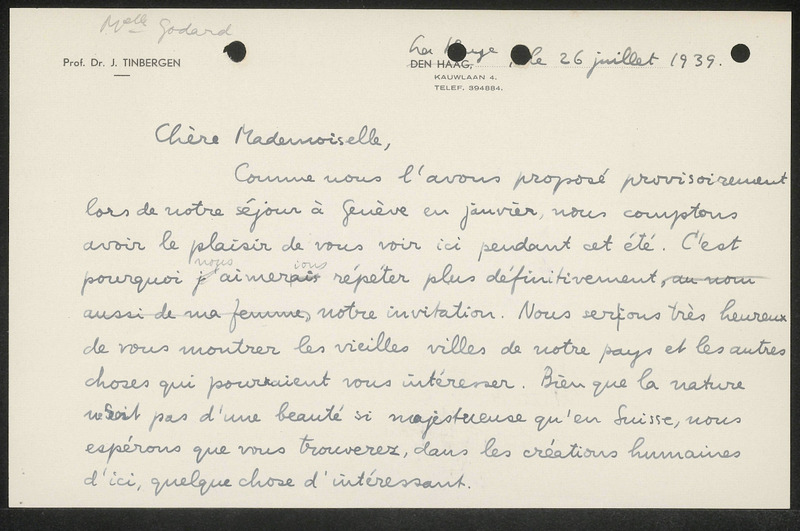 Melle Godard
Prof. Dr. J. TINBERGEN
La Haye, le 26 juillet 1939.
DEN HAAG,
KAUWLAAN 4.
TELEF. 394884.
Chère Mademoiselle,
Comme nous l'avons proposé provisoirement
lors de notre séjour à Genève en janvier, nous comptons
avoir le plaisir de vous voir ici pendant cet été. C'est
nous ions
pourquoi j'aimerais répéter plus définitivement, au nom
aussi de ma femme, notre invitation. Nous serions très heureux
de vous montrer les vieilles villes de notre pays et les autres
choses qui pourraient vous intéresser. Bien que la nature
soit pas d'une beauté si majestueuse qu'en Suisse, nous
espérons que vous trouverez, dans les créations humaines
d'ici, quelque chose d'intéressant.